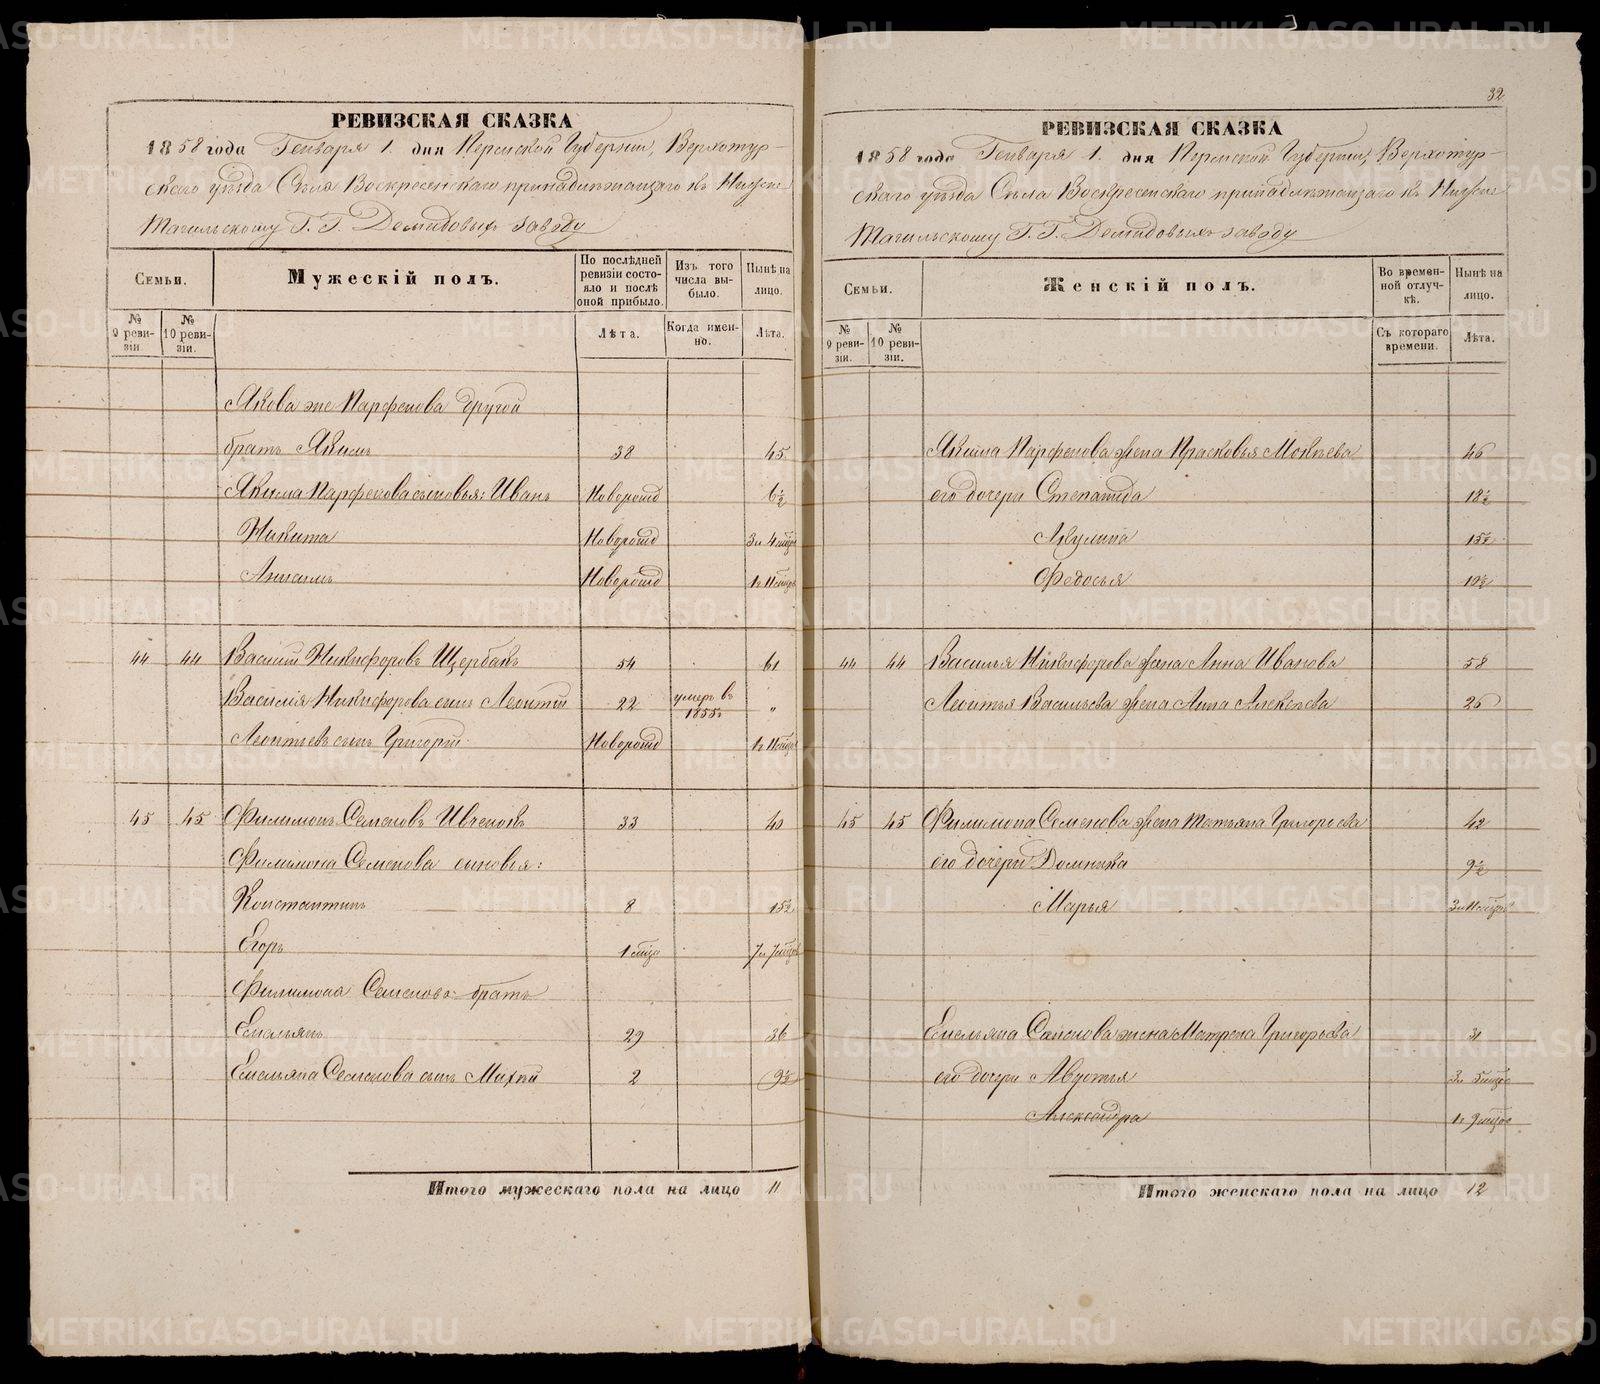 РЕВИЗСКАЯ СКАЗКА
1858 года Генваря 1. дня Пермской Губернии, Верхотур-
скаго уѣзда Села Воскресенскаго принадлежащаго къ Нижне
Тагильскому Г. Г. Демидовыхъ заводу
Семьи.
Мужескій полъ.
По послѣдней ревизіи состояло и послѣ оной прибыло.
Изъ того числа выбыло.
Нынѣ на лицо.
№ 9 ревизіи.
№ 10 ревизіи.
Лѣта.
Когда именно.
Лѣта.
Якова же Парфенова другой
братъ Якимъ 38 45
Якима Парфенова сыновья: Иванъ Новорожд 6½
Никита Новорожд 3 г 4 мѣсяц
Анисимъ Новорожд 1 г 11 мѣсяц
44 44 Василій Никифоровъ Щербакъ 54 61
Василія Никифорова сынъ Леонтій 22 умеръ въ 1855 г "
Леонтьевъ сынъ Григорій Новорожд 1 г 11 мѣсяц
45 45 Филимонъ Семеновъ Ивченокъ 33 40
Филимона Семенова сыновья:
Константинъ 8 15½
Егоръ 1 мѣсяц 7 г 7 мѣсяц
Филимона Семенова братъ
Емельянъ 29 36
Емельяна Семенова сынъ Михѣй 2 9½
Итого мужескаго пола на лицо 11
32
РЕВИЗСКАЯ СКАЗКА
1858 года Генваря 1. дня Пермской Губерніи, Верхотур-
скаго уѣзда Села Воскресенскаго принадлежащаго къ Нижне
Тагильскому Г. Г. Демидовыхъ заводу
Семьи.
Женскій полъ.
Во временной отлучкѣ.
Нынѣ на лицо.
№ 9 ревизіи.
№ 10 ревизіи.
Съ котораго времени.
Лѣта.
Якима Парфенова жена Прасковья Мокѣева 46
его дочери Степанида 18½
Акулина 15½
Федосья 10½
44 44 Василья Никифорова жена Анна Иванова 58
Леонтья Васильева жена Анна Алексѣева 26
45 45 Филимона Семенова жена Татьяна Григорьева 42
его дочери Домника 9½
Марья 3 г 11 мѣсяц
Емельяна Семенова жена Матрена Григорьева 31
его дочери Авдотья 3 г 5 мѣсяц
Александра 1 г 9 мѣсяц
Итого женскаго пола на лицо 12
METRIKI.GASO-URAL.RU